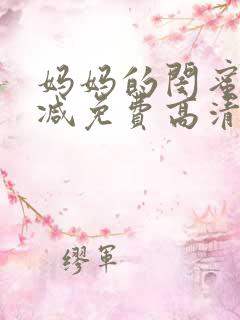 妈妈的闺蜜
减免费高清
缪军